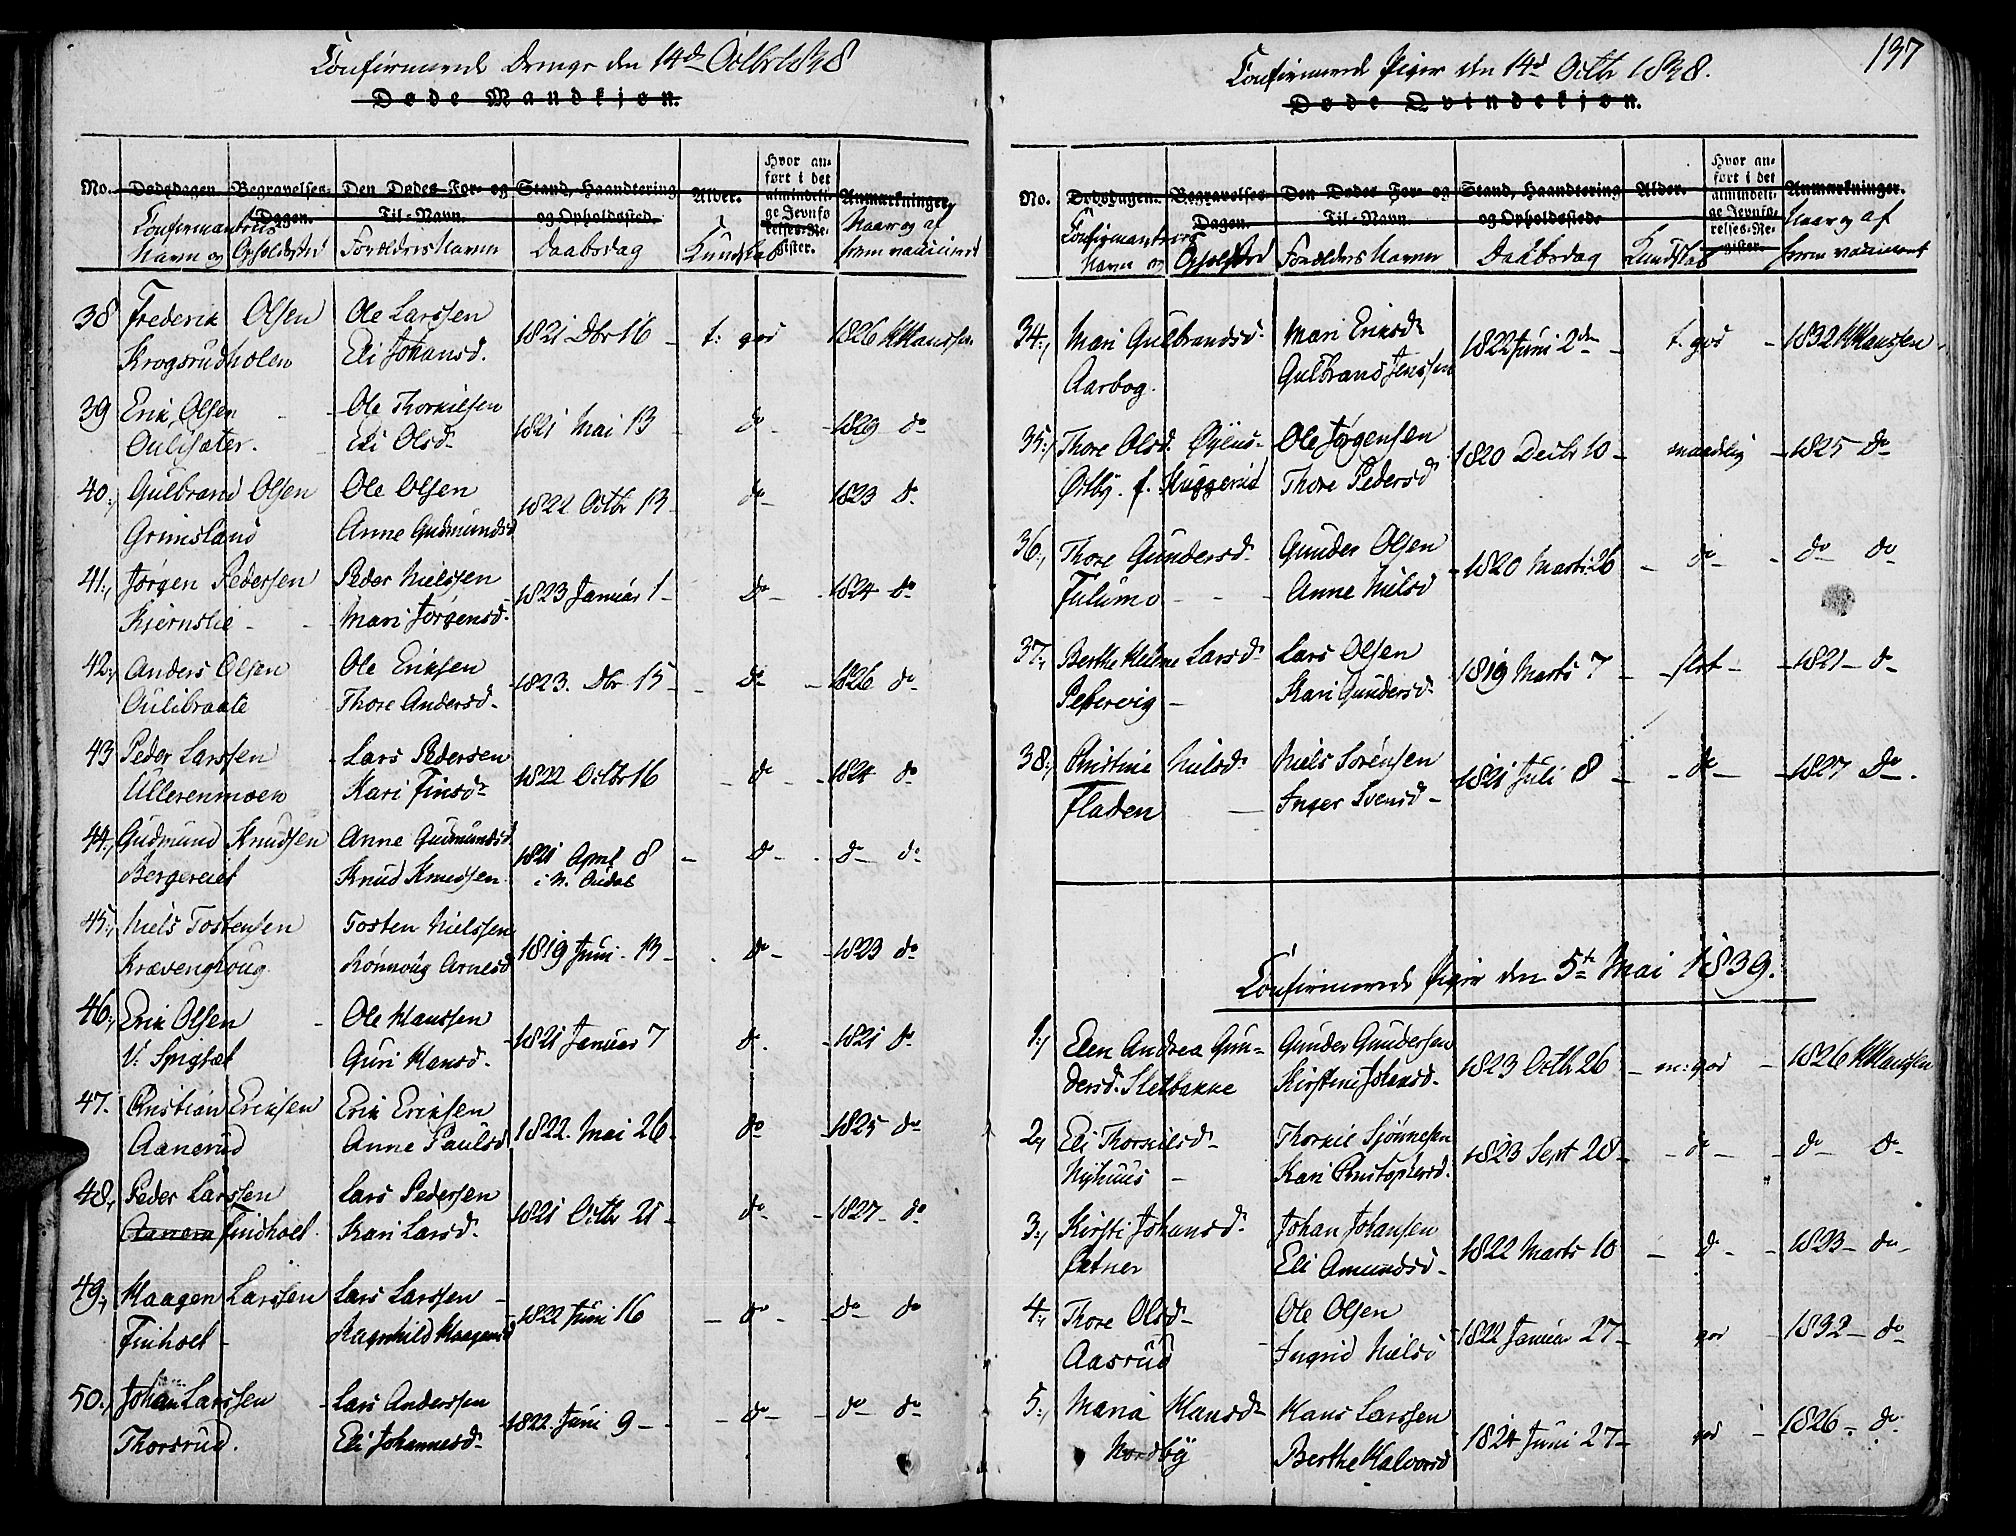 Confirmerede Drenge den 14de Octbr 1838
Døde Mandkjøn.
No. Dødsdagen. Begravelses-Dagen. Den Dødes For- og Til-Navn. Stand, Haandtering og Opholdssted. Alder. Hvor anført i det almindelige Jevnførelses-Register. Anmærkninger.
Confirmandens Navn og Opholdsted Forældres Navn Daabsdag Kundskab Naar og af hvem vaccineret
38 Frederik Olsen Ole Larssen 1821 Dbr 16 t: god 1826 HHanssen
Krogsrudholen Eli Johansd.
39 Erik Olsen Ole Thorkilsen 1821 Mai 13 do 1829 do
Oulisæter. Eli Olsd
40, Gulbrand Olsen Ole Olsen 1822 Octbr 13 do 1823 do
Grimsland Anne Gudmundsd
41, Jørgen Pedersen Peder Nielssen 1823 Januar 1 do 1824 do
Kjernslie Mari Jørgensd.
42, Anders Olsen Ole Eriksen 1823. Dbr 15 do 1826 do
Oulibraate Thore Andersd
43 Peder Larssen Lars Pedersen 1822 Octbr 16 do 1824 do
Ullerenmoen Kari Finsd
44, Gudmund Knudsen Anne Gudmundsd 1821 April 8 do do do
Bergereiet Knud Knudsen i N. Oudal
45, Niels Tostensen Tosten Nielssen 1819 Juni 13 do 1823 do
Krævenghoug Rønnoug Arnesd
46, Erik Olsen Ole Hanssen 1821 Januar 7 do 1821 do
V. Spigset Guri Hansd.
47. Christian Eriksen Erik Eriksen 1822. Mai 26 do 1825 do
Aanerud Anne Paulsd
48, Peder Larssen Lars Pedersen 1821 Octbr 21 do 1827 do
Aanera Findholt. Kari Larsd.
49, Haagen Larssen Lars Larssen 1822 Juni 16 do do do
Finholt Ragnhild Haagensd
50, Johan Larssen Lars Anderssen 1822 Juni 9 do do do
Thorsrud. Eli Johannesd.
197
Confirmerede Piger den 14de Octbr 1838.
Døde Qvindekjøn.
No. Dødsdagen. Begravelses-Dagen. Den Dødes For- og Til-Navn. Stand, Haandtering og Opholdssted. Alder. Hvor anført i det almindelige Jevnførelses-Register. Anmærkninger.
Confirmandens Navn og Opholsted Forældres Navne Daabsdag Kundskab Naar og af hvem vaccineret
34, Mari Gulbrandsd. Mari Eriksd 1822 Juni 2den t. god 1832 HHanssen
Aarbog. Gulbrand Jenssen
35, Thore Olsd. Øiens- Ole Jørgensen 1820 Decbr 10 maadelig 1825 do
Østby. f. Huggerud Thore Pedersd
36, Thore Gundersd. Gunder Olsen 1820 Marts 26 do do do
Fulumo Anne Nielsd
37, Berthe Helene Larsd. Lars Olsen 1819 Marts 7 slet 1821 do
Pefervig Kari Gundersd.
38, Christine Nielsd. Niels Sørensen 1821 Juli 8 do 1827 do
Fladen Inger Svensd
Confirmerede Piger den 5te Mai 1839.
1, Elen Andrea Gun- Gunder Gundersen 1823 Octbr 26 m: god 1826 HHanssen
dersd. Sletbakke Kirstine Johansd.
2, Eli Thorkilsd Thorkil Sjønnesen 1823 Sept 28 do do do
Nyhuus Kari Christophersd.
3, Kirsti Johansd. Johan Johansen 1822 Marts 10 do 1823 do
Pætner Eli Amundsd
4, Thore Olsd Ole Olsen 1822 Januar 27 god 1832 do
Aasrud Ingrid Nielsd
5, Maria Hansd Hans Larssen 1824 Juni 27 god 1826 do
Nordby Berthe Halvorsd